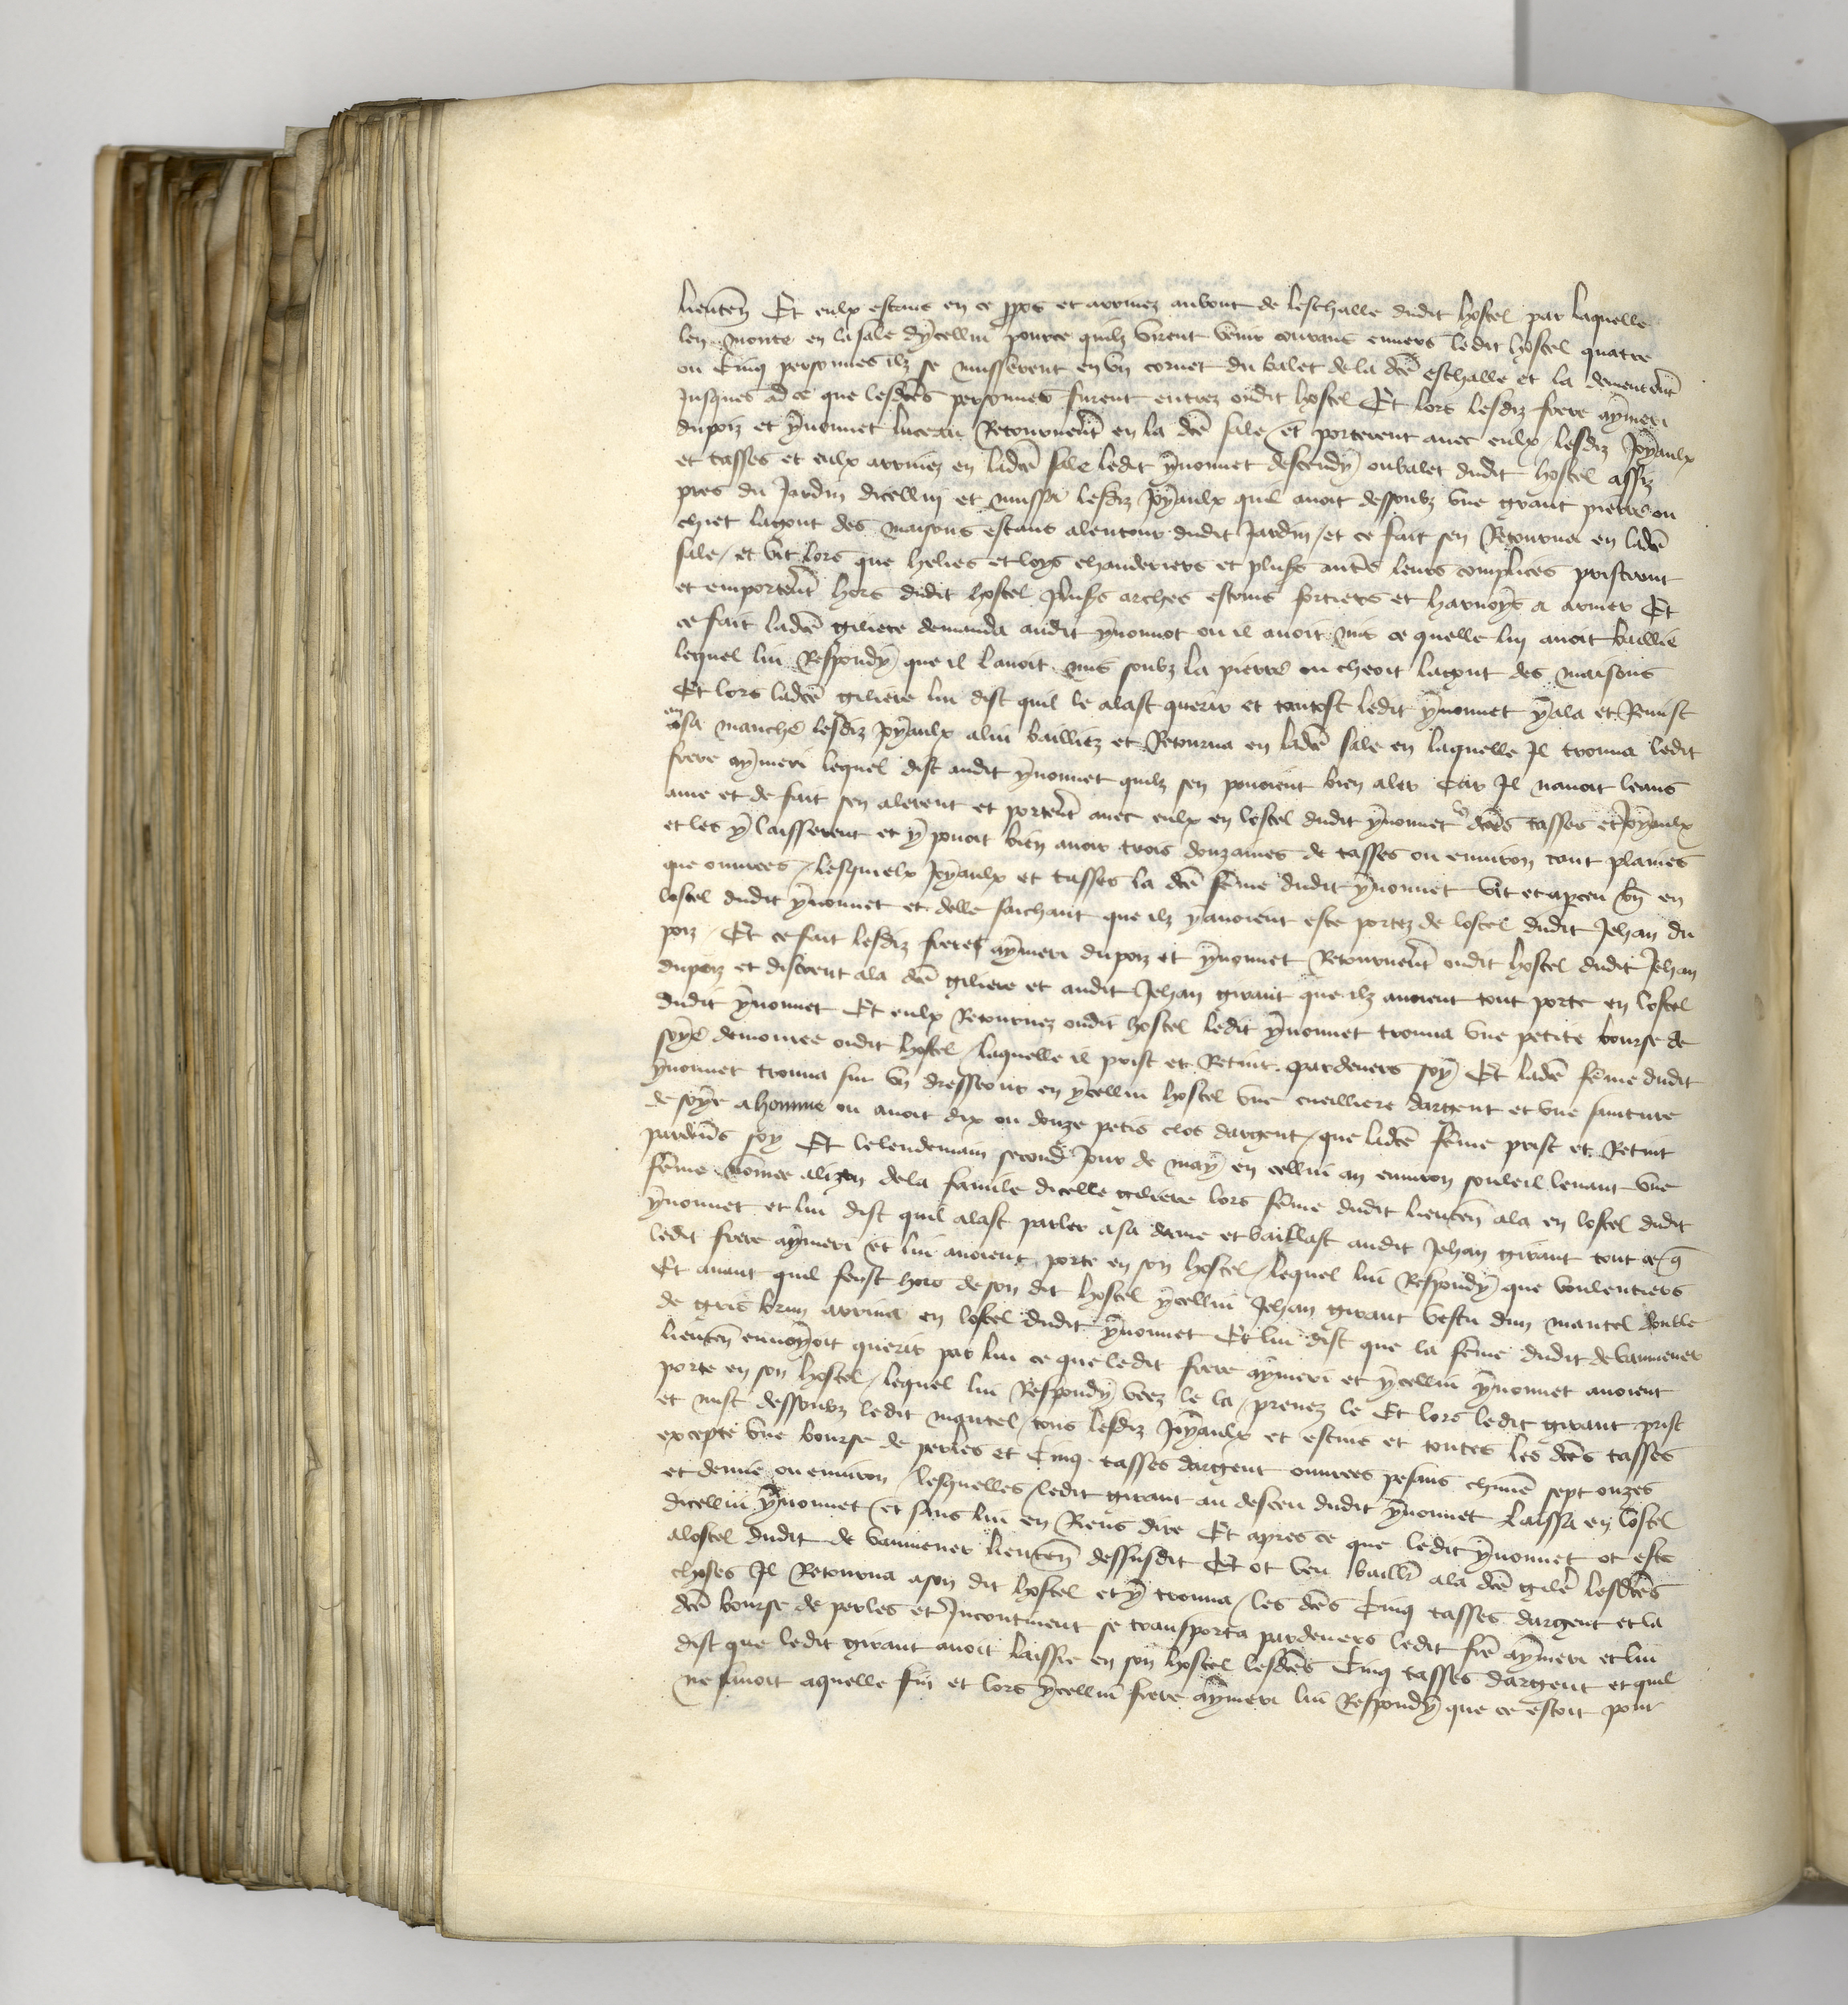 lieuten̄ Et eulx estans en ce ppos et arrivez au bout de leschalle dudit hostel par laquelle
len monte en la sale dycellui pource quilz virent venir courans envers ledit hostel quatre
ou cinq personnes ilz se musserent en un cornet du balet de la dcē eschalle et la demeurer̄t
jusques ad ce que lesdcēs personnes furent entrez oudit hostel Et lors lesdiz frere aymeri
dupoiz et yvonnet luceau Retourner̄t en la dcē sale et porterent avec eulx lesdiz joyaulx
et tasses et eulx arrivez en ladcē sale ledit yvonnet descendy ou balet dudit hostel assiz
pres du jardin dicellui et mussa lesdiz joyaulx quil avoit dessoubz une grant pierre ou
chiet lagout des maisons estans alentour dudit jardin et ce fait sen Retourna en ladcē
sale et vit lors que helies et loys chauderiers et plus̄s autr̄s leurs complices pristrent
et emporter̄t hors dudit hostel plus̄s arches estans sortiers et harnoys a armer Et
ce fait ladcē giliere demanda audit yvonnot ou il avoit mis ce quelle luy avoit baillie
lequel lui Respondy que il lavoit mis soubz la pierre ou cheoit lagout des maisons
Et lors ladcē giliere lui dist quil le alast querir et tantost ledit yvonnet y ala et Remist
en sa manche lesdiz joyaulx a lui bailliez et Retourna en ladcē sale en laquelle il trouva ledit
frere aymeri lequel dist audit yvonnet quilz sen povoient bien aler car il navoit leans
ame et de fait sen alerent et porter̄t avec eulx en lostel dudit yvonnet les dcēs tasses et joyaulx
et les y laisserent et y povoit bien avoir trois douzaines de tasses ou environ tant plaines
que ouvrees lesquielx joyaulx et tasses la dcē fēme dudit yvonnet vit et apceu bn̄ en
lostel dudit yvonnet et delle saichant que ilz y avoient este portez de lostel dudit Jehan du
poiz Et ce fait lesdiz freres aymeri dupoiz et yvonnet Retourner̄t oudit hostel dudit Jehan
dupoiz et distrent a la dcē giliere et audit Jehan girant que ilz avoient tout porte en lostel
dudit yvonnet Et eulx Retournez oudit hostel ledit yvonnet trouva une petite bourse de
soye demouree oudit hostel laquelle il prist et Retint pardevers soy Et ladcē fēme dudit
yvonnet trouva sur un dressouer en ycellui hostel une cueilliere dargent et une sainture
de soye a homme ou avoit dix ou douze petis clos dargent que ladcē fēme prist et Retint
pardevs̄ soy Et lelendemain second jour de may en cellui an environ souleil levant une
fēme nōmee alizon de la famile dicelle giliere lors fēme dudit lieuten̄ ala en lostel dudit
yvonnet et lui dist quil alast parler a sa dame et baillast audit Jehan girant tout ce q̄
ledit frere aymeri et lui avoient porte en son hostel lequel lui Respondy que voulentiers
Et avant quil feust hors de son dit hostel ycellui Jehan girant vestu dun mantel double
de gris brun arriva en lostel dudit yvonnet Et lui dist que la fēme dudit de vanmener
lieuten̄ envoyoit querir par lui ce que ledit frere aymeri et ycellui yvonnet avoient
porte en son hostel lequel lui Respondy veez le la prenez le Et lors ledit girant prist
et mist dessoubz ledit mantel tous lesdiz joyaulx et estuis et toutes les dcēs tasses
excepte une bourse de perles et cinq tasses dargent ouvrees pesans chūne sept onzes
et demie ou environ lesquelles ledit girant au desceu dudit yvonnet laissa en lostel
dicellui yvonnet et sans lui en Riens dire Et apres ce que ledit yvonnet ot este
a lostel dudit de vanmener lieuten̄ dessusdit Et ot veu baillr̄ a la dcē gilr̄e lesdcēs
choses il Retourna a son dit hostel et y trouva les dcēs cinq tasses dargent et la
dcē bourse de perles et Incontinent se transporta pardevers ledit fr̄e aymeri et lui
dist que ledit girant avoit laissie en son hostel lesdcēs cinq tasses dargent et quil
ne savoit a quelle fin et lors ycellui frere aymeri lui Respondy que ce estoit pour